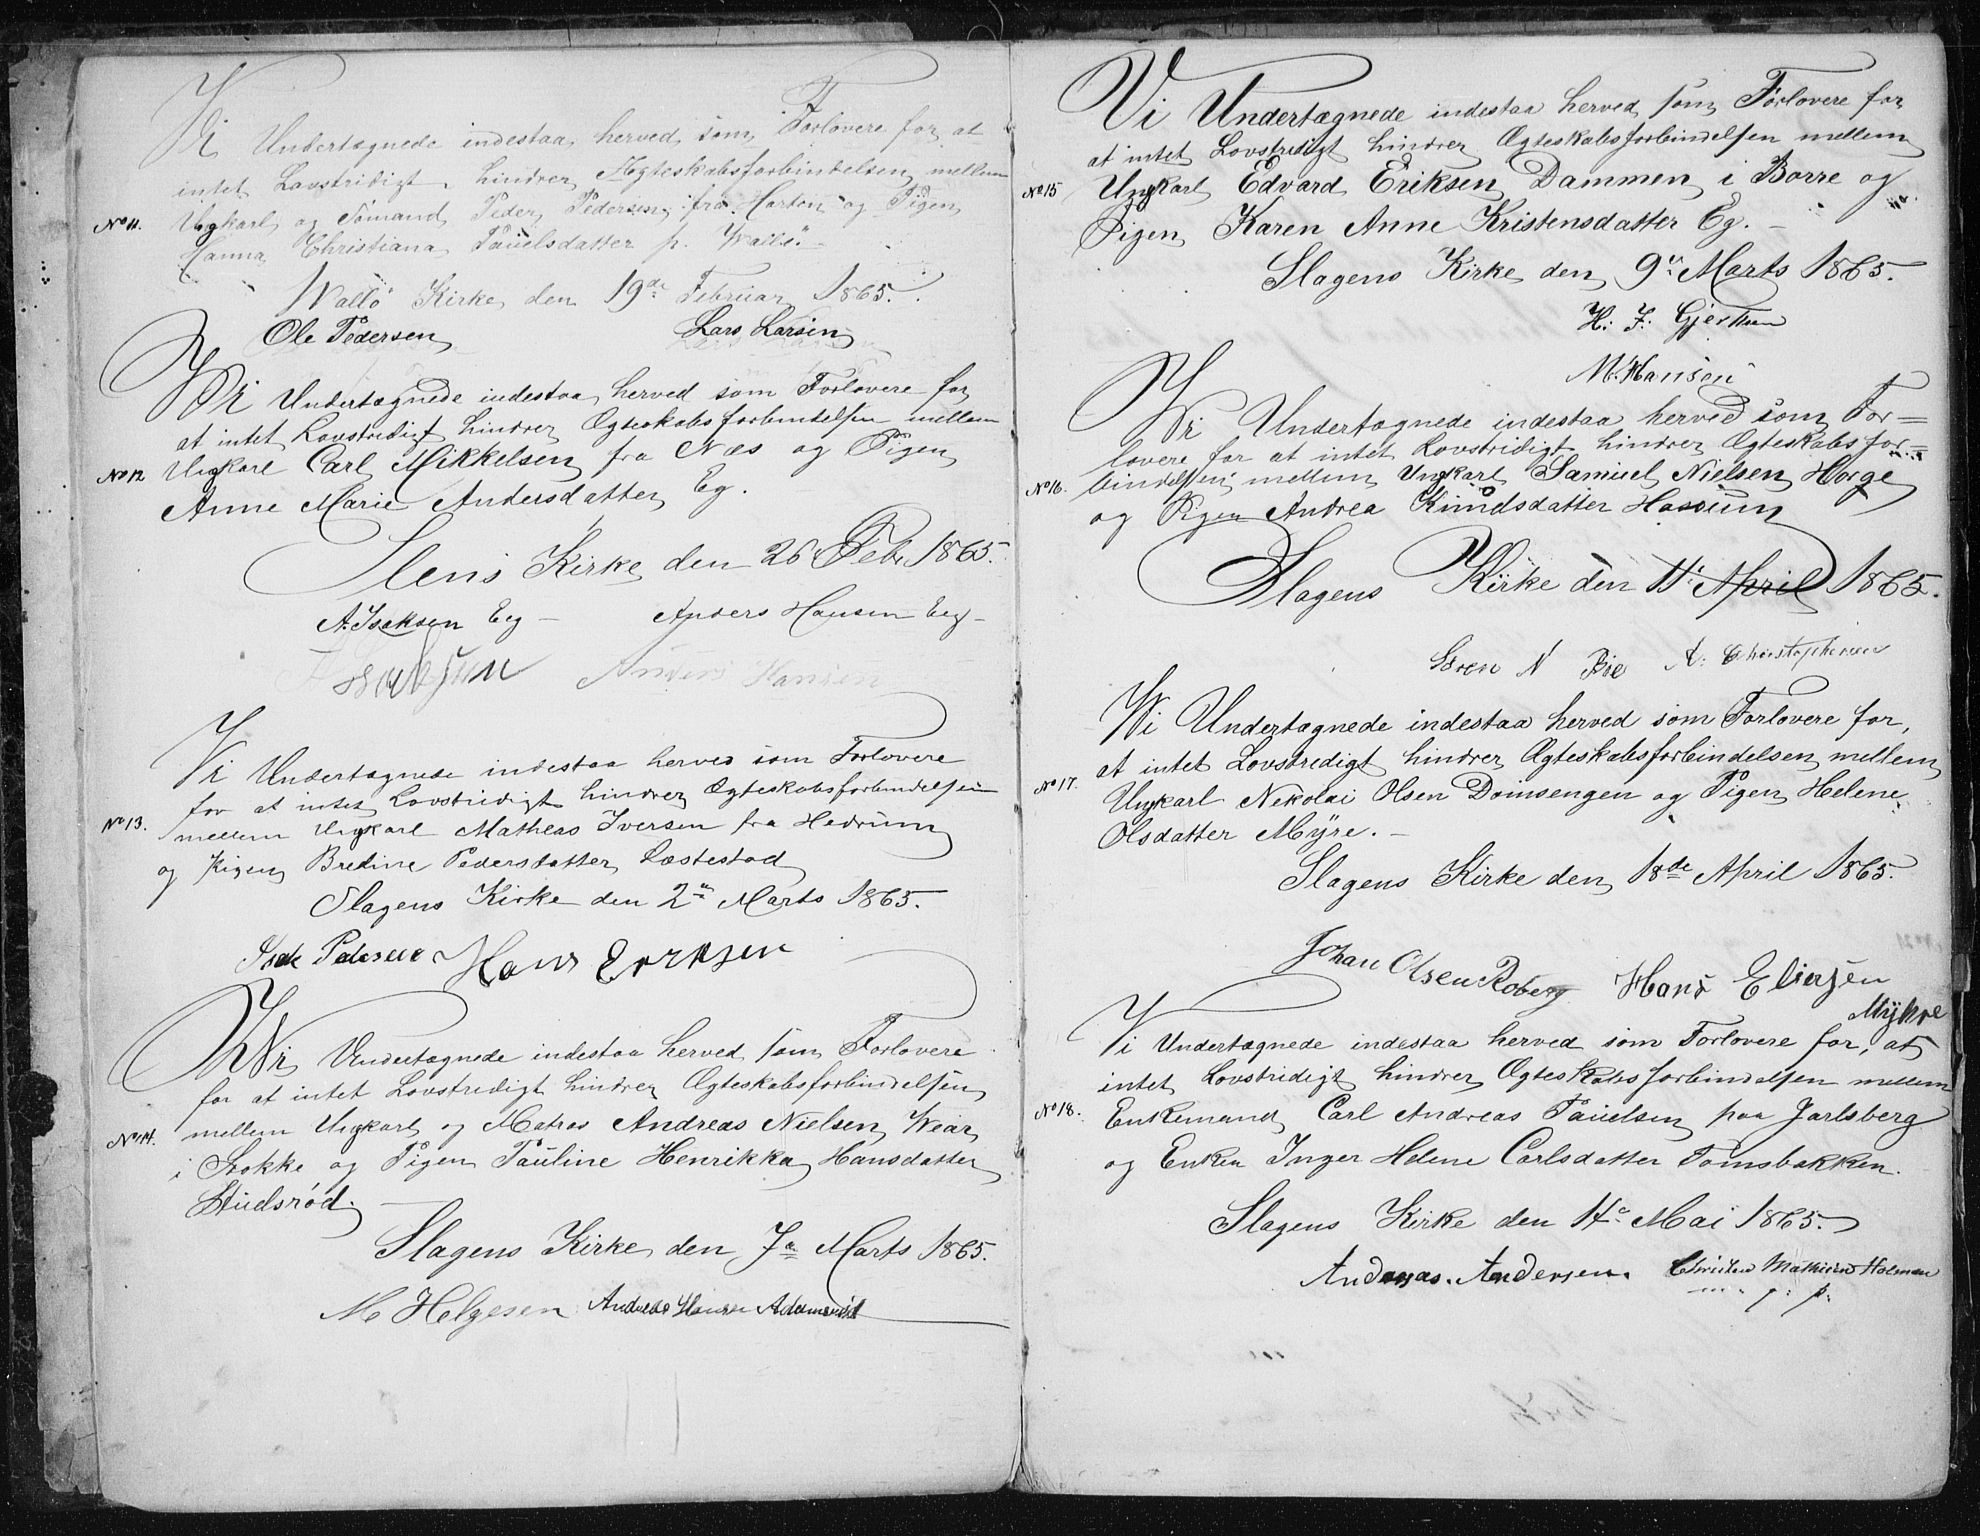 Vi Undertægnede indestaa herved som Forlovere for at
intet Lovstridigt hindrer Ægteskabsforbindelsen mellem
No 11. Ungkarl og Sømand Peder Pedersen fra Horten og Pigen
Hanna Christiana Pauelsdatter p. Vallö.
Vallö Kirke den 19de Februar 1865.
Ole Pedersen Lars Larsen
Vi Undertægnede indestaa herved som Forlovere for
at intet Lovstridigt hindrer Ægteskabsforbindelsen mellem
No 12 Ungkarl Carl Mikkelsen fra Næs og Pigen
Anne Marie Andersdatter Eg.
Slens Kirke den 26 Feb. 1865.
A. Isaksen Eeg Anders Hansen Eeg
Isaksen Anders Hansen
Vi Undertægnede indestaa herved som Forlovere
for at intet Lovstridigt hindrer Ægteskabsforbindelsen
No 13. mellem Ungkarl Mathias Iversen fra Hedrum
og Pigen Bredine Pedersdatter Basteстad
Slagens Kirke den 2n Marts 1865.
Isak Pedersen Hans Eriksen
Vi Undertægnede indestaa herved som Forlovere
for at intet Lovstredigt hindrer Ægteskabsforbindelsen
No 14. mellem Ungkarl og Matros Andreas Nielsen Wear
i Stokke og Pigen Pauline Henrikka Hansdatter
Studsröd.
Slagens Kirke den 7n Marts 1865.
M Helgesen Andreas Hansen Adamsröd
Vi Undertægnede indestaa herved som Forlovere for
at intet Lovstredigt hindrer Ægteskabsforbindelsen mellem
No 15 Ungkarl Edvard Eriksen Dammen i Borre og
Pigen Karen Anne Kristensdatter Eg.
Slagens Kirke den 9n Marts 1865.
H. J. Gjertsen
M. Hansen
Vi Undertægnede indestaa herved som For=
lovere for at intet Lovstridigt hindrer Ægteskabsfor=
No 16. bindelsen mellem Ungkarl Samuel Nielsen Horge
og Pigen Andrea Knudsdatter Hassum
Slagens Kirke den 11. April 1865.
Sören N Bie A. Christophersen
Vi Undertægnede indestaa herved som Forlovere for,
at intet Lovstredigt hindrer Ægteskabsforbindelsen mellem
No 17. Ungkarl Nekolai Olsen Domsengen og Pigen Helene
Olsdatter Myre.
Slagens Kirke den 18de April 1865.
Johan Olsen Roberg Hans Eliesen
Myhre
Vi Undertægnede indestaa herved som Forlovere for, at
intet Lovstridigt hindrer Ægteskabsforbindelsen mellem
No 18. Enkemand Carl Andreas Pauelsen paa Jarlsberg
og Enken Inger Helene Carlsdatter Tomsbakken.
Slagens Kirke den 14e Mai 1865.
Andreas Andersen. Christen Mathisen Holman
m. p. p.